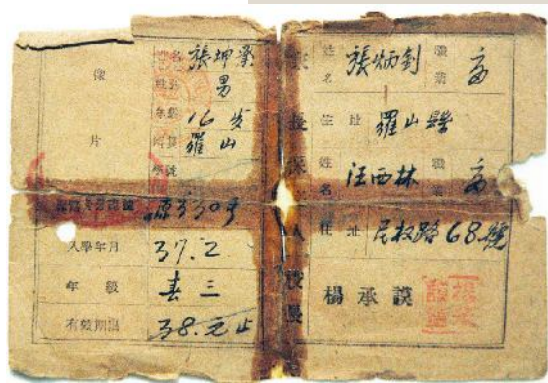 像
片
姓名 張坤業
性別 男
年齡 16岁
籍貫 羅山
學號
字第 號 原330号
入學年月 37.2
年級 春三
有效期間 38.元止
家長
姓名 張炳釗 職業 商
住址 羅山縣
保
人
姓名 汪西林 職業 商
住址 民权路68號
校長 楊承謨